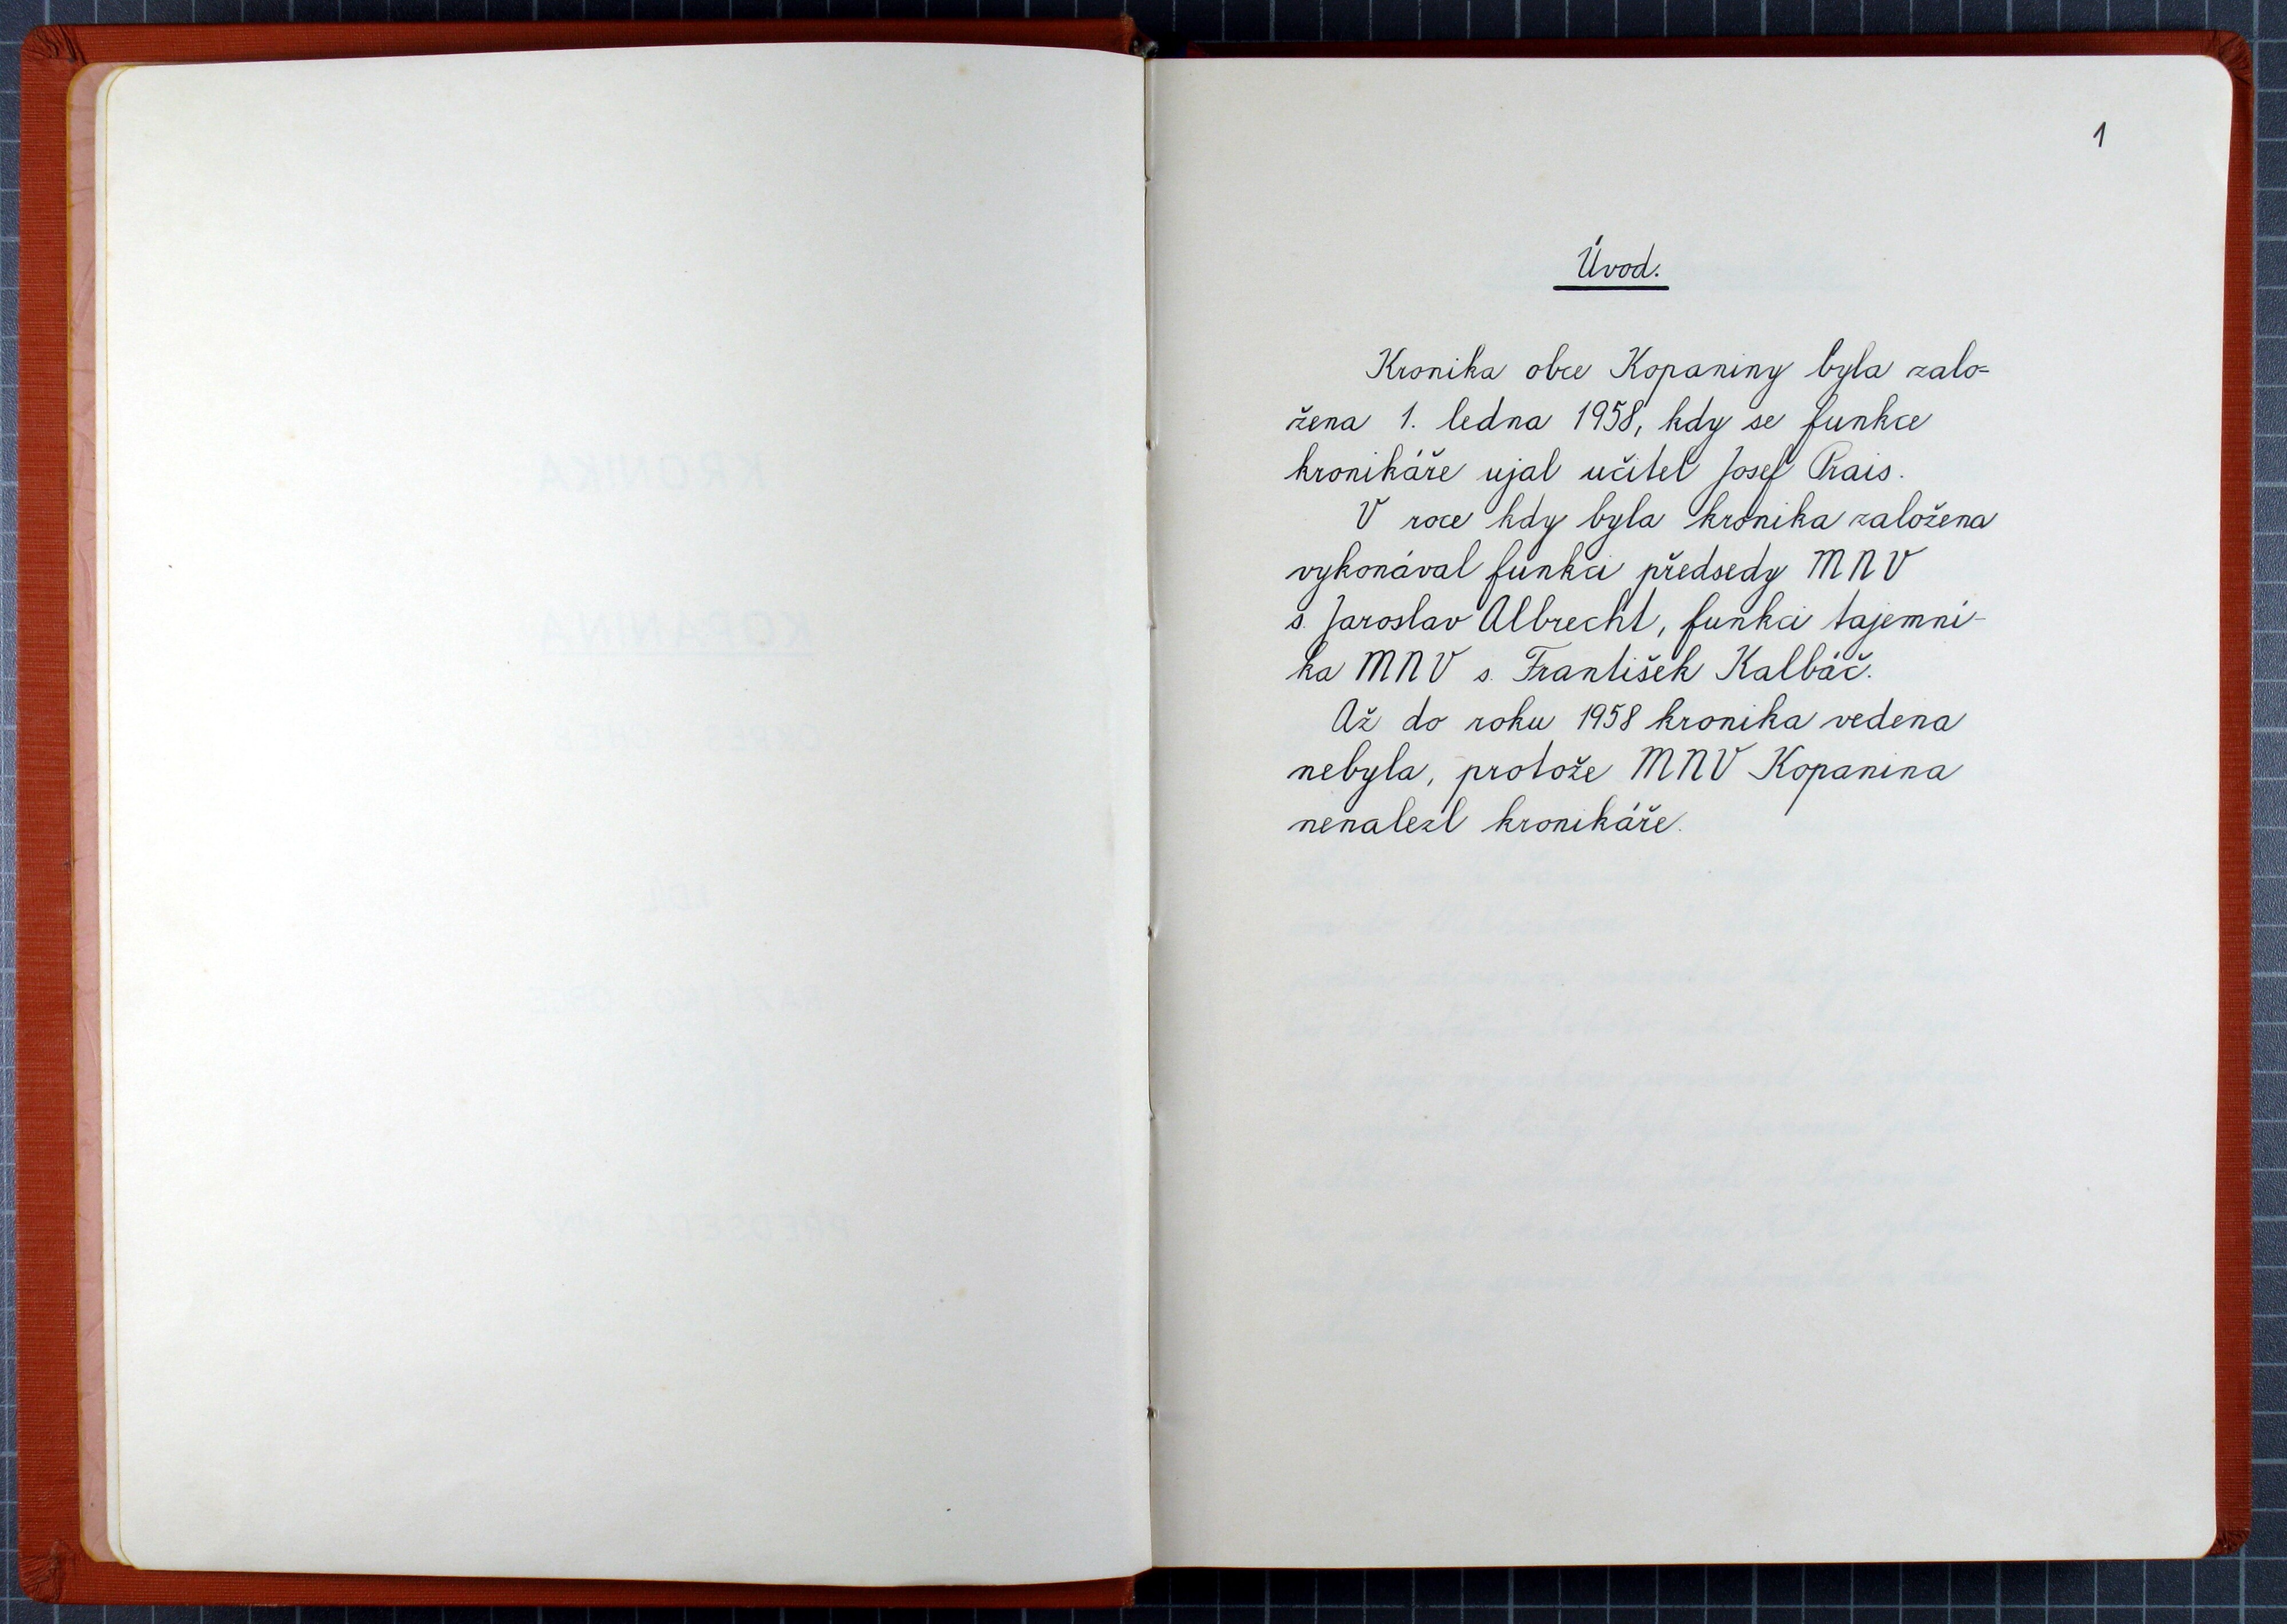 1
Úvod.
Kronika obce Kopaniny byla zalo=
žena 1. ledna 1958, kdy se funkce
kronikáře ujal učitel Josef Prais.
V roce kdy byla kronika založena
vykonával funkci předsedy MNV
s. Jaroslav Albrecht, funkci tajemní-
ka MNV s. František Kalbáč.
Až do roku 1958 kronika vedena
nebyla, protože MNV Kopanina
nenalezl kronikáře.
KRONIKA
KOPANINA